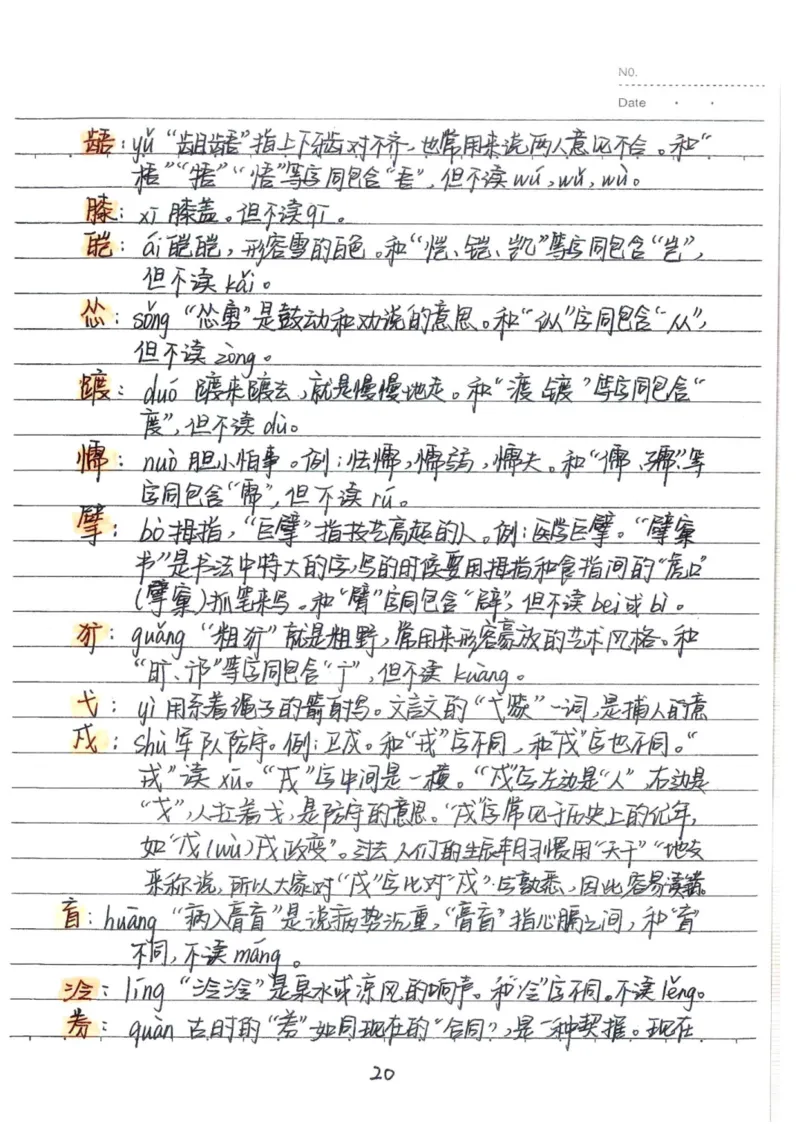 NO.
Date
龉：yǔ “龃龉”指上下牙齿对不齐，也常用来说两人意见不合。和“
梧”“牾”“悟”等字同包含“吾”，但不读wú，wǔ，wù。
膝：xī 膝盖。但不读qī。
皑：ái 皑皑，形容雪的白色。和“恺、铠、凯”等字同包含“岂”，
但不读kǎi。
怂：sǒng “怂恿”是鼓动和劝说的意思。和“纵”字同包含“从”，
但不读zòng。
踱：duó 踱来踱去，就是慢慢地走。和“渡、镀”等字同包含“
度”，但不读dù。
懦：nuò 胆小怕事。例：怯懦，懦弱，懦夫。和“儒、孺”等
字同包含“需”，但不读rú。
擘：bò 拇指，“巨擘”指技艺高超的人。例：医学巨擘。“擘窠
书”是书法中特大的字，写的时候要用拇指和食指间的“虎口”
（擘窠）抓笔来写。和“臂”字同包含“辟”，但不读bei或bì。
犷：guǎng “粗犷”就是粗野，常用来形容豪放的艺术风格。和
“旷、邝”等字同包含“广”，但不读kuàng。
弋：yì 用系着绳子的箭射鸟。文言文的“弋獲”一词，是捕人的意
戍：shù 军队防守。例：卫戍。和“戎”字不同，和“戌”字也不同。“
戌”读xū。“戌”字中间是一横。“戍”字左边是“人”，右边是
“戈”，人拉着戈，是防守的意思。“戌”字常见于历史上的纪年，
如“戊(wù)戌政变”。过去人们的生辰年月习惯用“天干”“地支
来称说，所以大家对“戌”字比对“戍”字熟悉，因此容易读错。
肓：huāng “病入膏肓”是说病势沉重，“膏肓”指心膈之间，和“盲”
不同，不读máng。
泠：líng “泠泠”是泉水或凉风的响声。和“冷”字不同。不读lěng。
券：quàn 古时的“券”如同现在的“合同”，是一种契据。现在
20